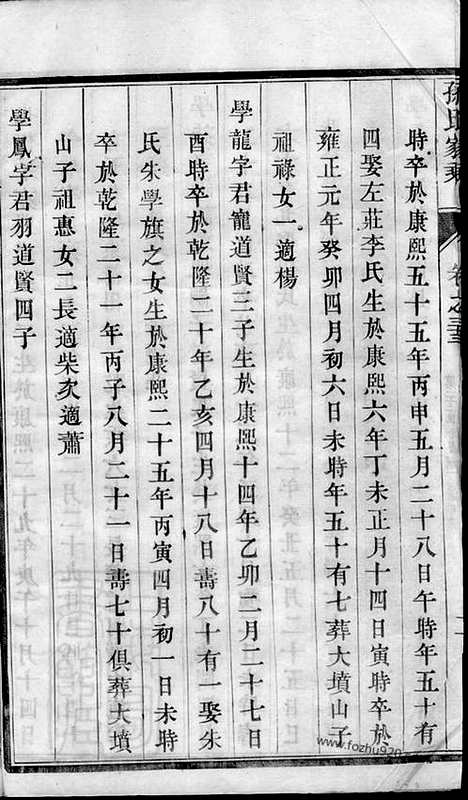 孫氏家乘
卷之三
時卒於康熙五十五年丙申五月二十八日午時年五十有
四娶左莊李氏生於康熙六年丁未正月十四日寅時卒於
雍正元年癸卯四月初六日未時年五十有七葬大墳山子
祖祿女一適楊
學龍字君寵道賢三子生於康熙十四年乙卯二月二十七日
酉時卒於乾隆二十年乙亥四月十八日壽八十有一娶朱
氏朱學旗之女生於康熙二十五年丙寅四月初一日未時
卒於乾隆二十一年丙子八月二十一日壽七十俱葬大墳
山子祖惠女二長適柴次適蕭
學鳳字君羽道賢四子
www.fozhu920